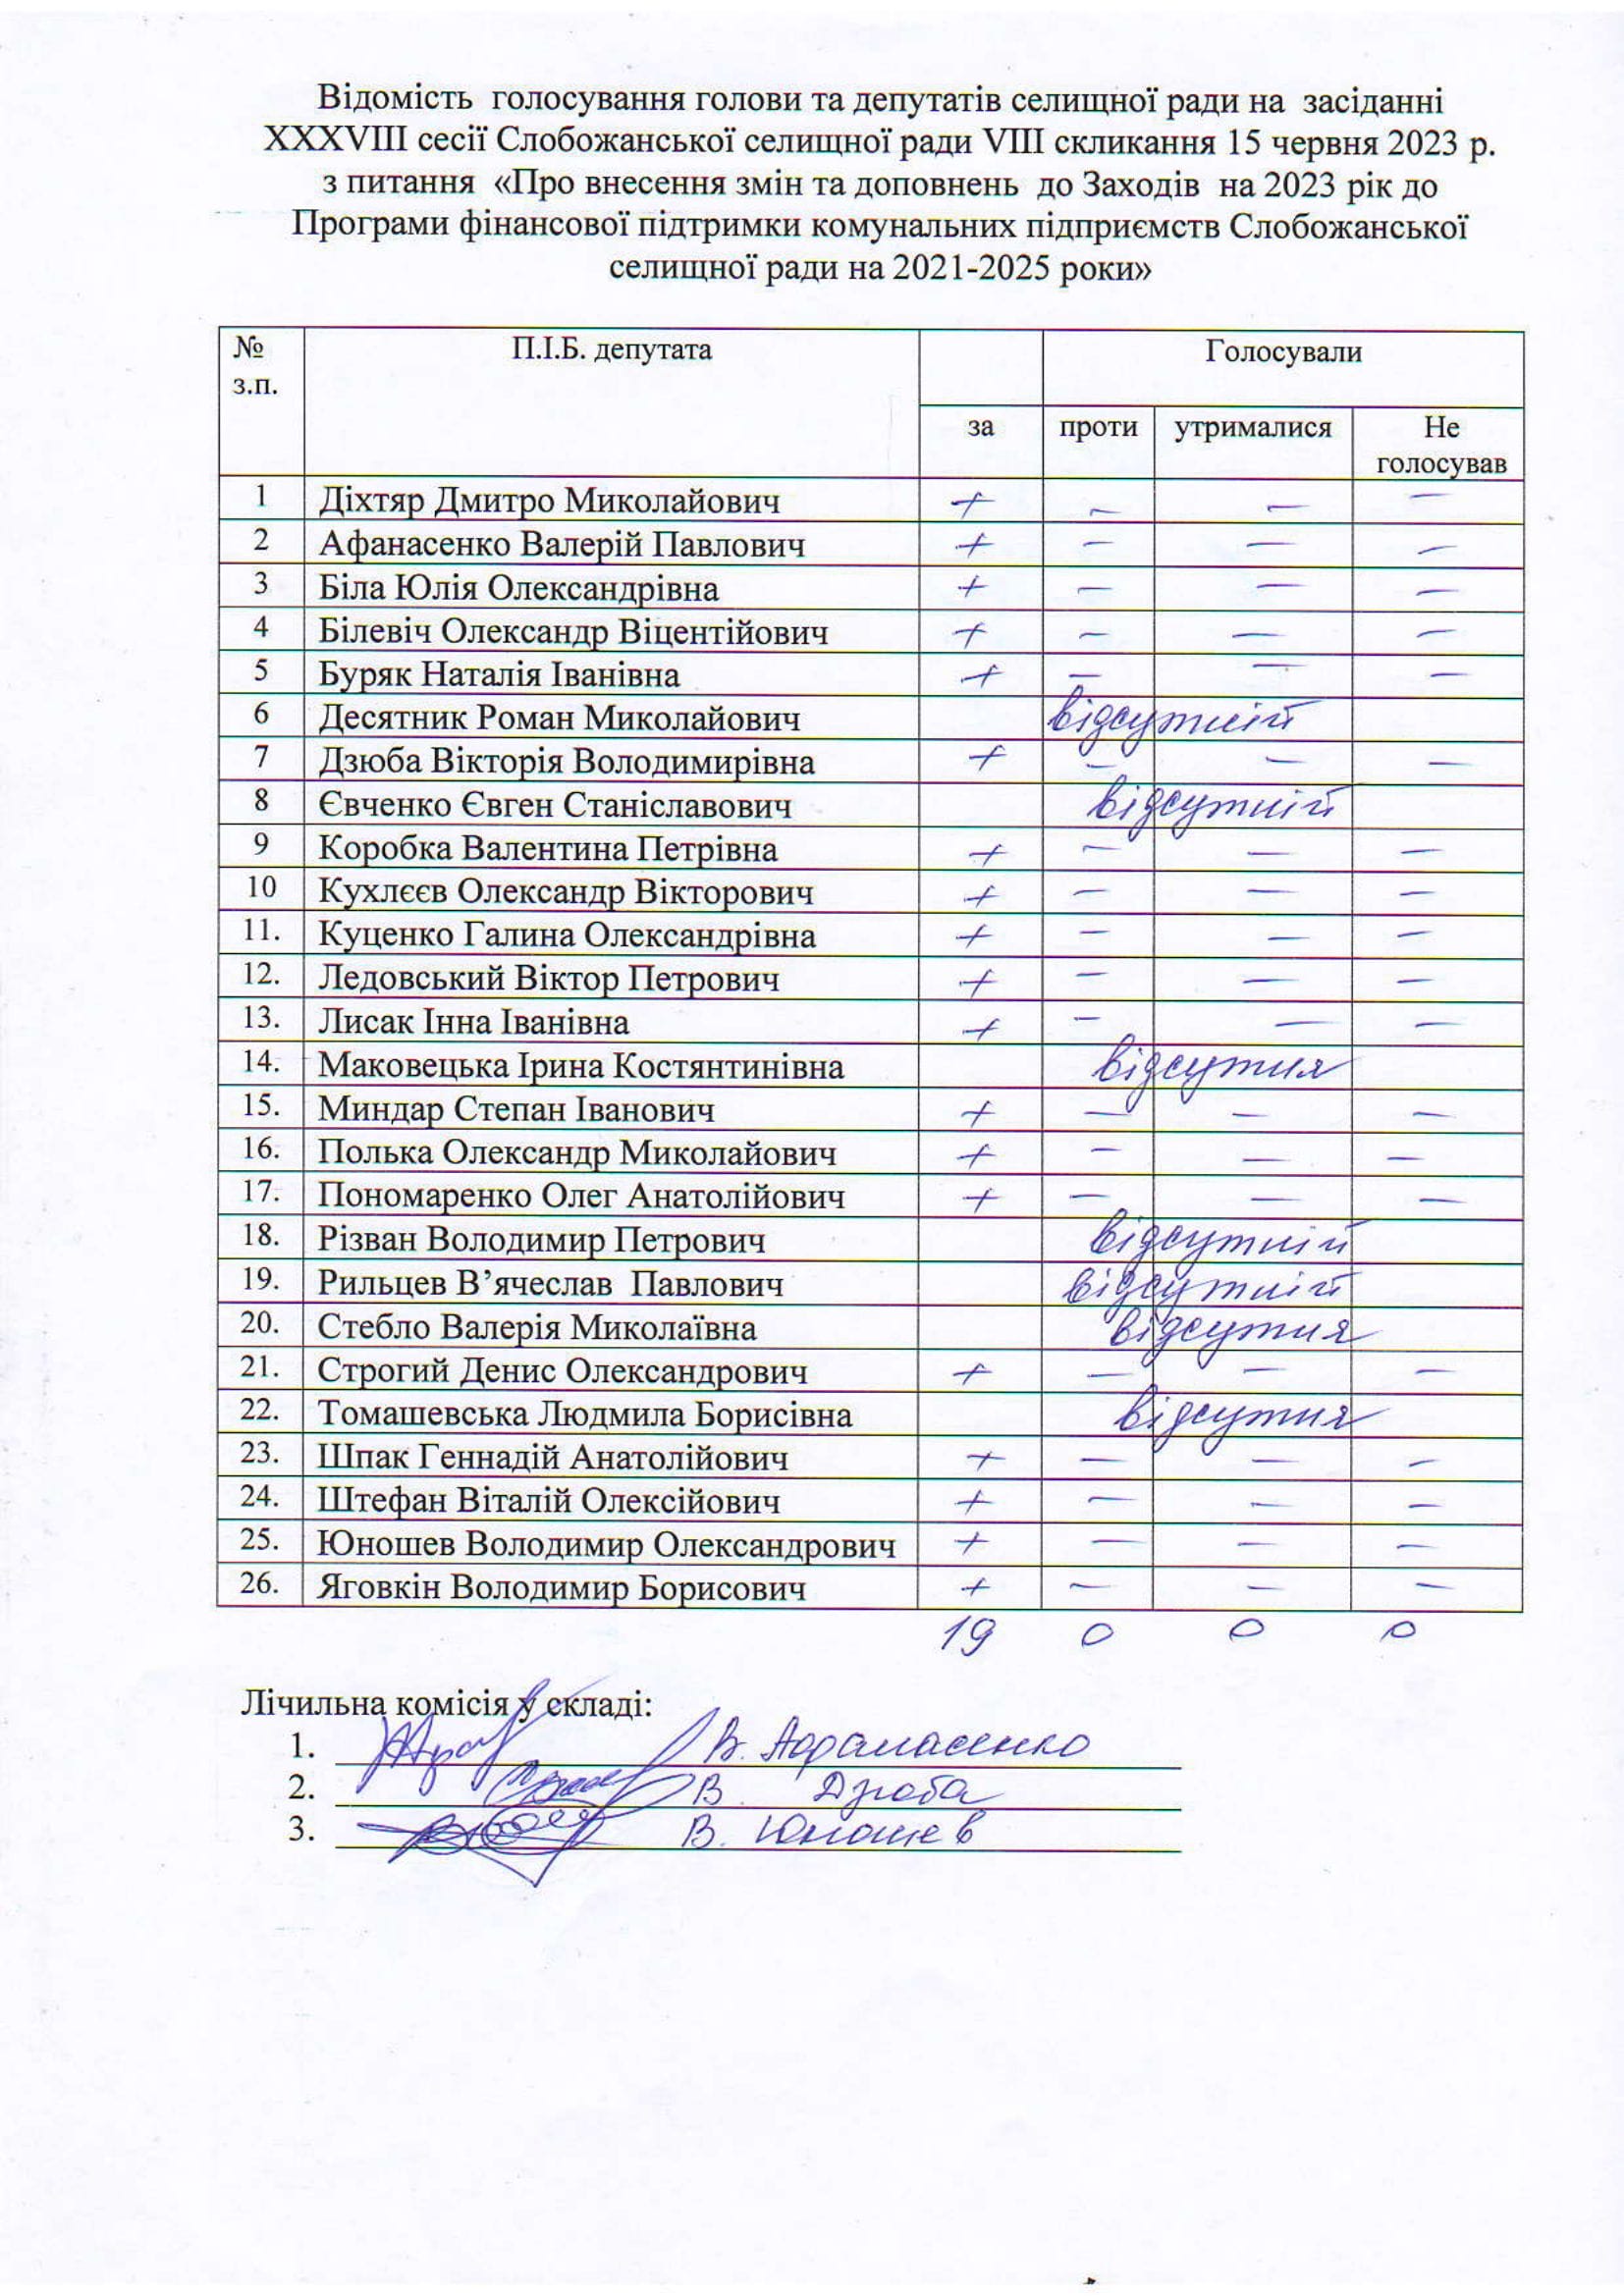 Відомість голосування голови та депутатів селищної ради на засіданні
XXXVIII сесії Слобожанської селищної ради VIII скликання 15 червня 2023 р.
з питання «Про внесення змін та доповнень до Заходів на 2023 рік до
Програми фінансової підтримки комунальних підприємств Слобожанської
селищної ради на 2021-2025 роки»
№ з.п. П.І.Б. депутата Голосували
за проти утрималися Не голосував
1 Діхтяр Дмитро Миколайович + – – –
2 Афанасенко Валерій Павлович + – – –
3 Біла Юлія Олександрівна + – – –
4 Білевіч Олександр Віцентійович + – – –
5 Буряк Наталія Іванівна + – – –
6 Десятник Роман Миколайович відсутній
7 Дзюба Вікторія Володимирівна + – – –
8 Євченко Євген Станіславович відсутній
9 Коробка Валентина Петрівна + – – –
10 Кухлєєв Олександр Вікторович + – – –
11. Куценко Галина Олександрівна + – – –
12. Ледовський Віктор Петрович + – – –
13. Лисак Інна Іванівна + – – –
14. Маковецька Ірина Костянтинівна відсутня
15. Миндар Степан Іванович + – – –
16. Полька Олександр Миколайович + – – –
17. Пономаренко Олег Анатолійович + – – –
18. Різван Володимир Петрович відсутній
19. Рильцев В’ячеслав Павлович відсутній
20. Стебло Валерія Миколаївна відсутня
21. Строгий Денис Олександрович + – – –
22. Томашевська Людмила Борисівна відсутня
23. Шпак Геннадій Анатолійович + – – –
24. Штефан Віталій Олексійович + – – –
25. Юношев Володимир Олександрович + – – –
26. Яговкін Володимир Борисович + – – –
19 0 0 0
Лічильна комісія у складі:
1. В. Афанасенко
2. В Дзюба
3. В. Юношев